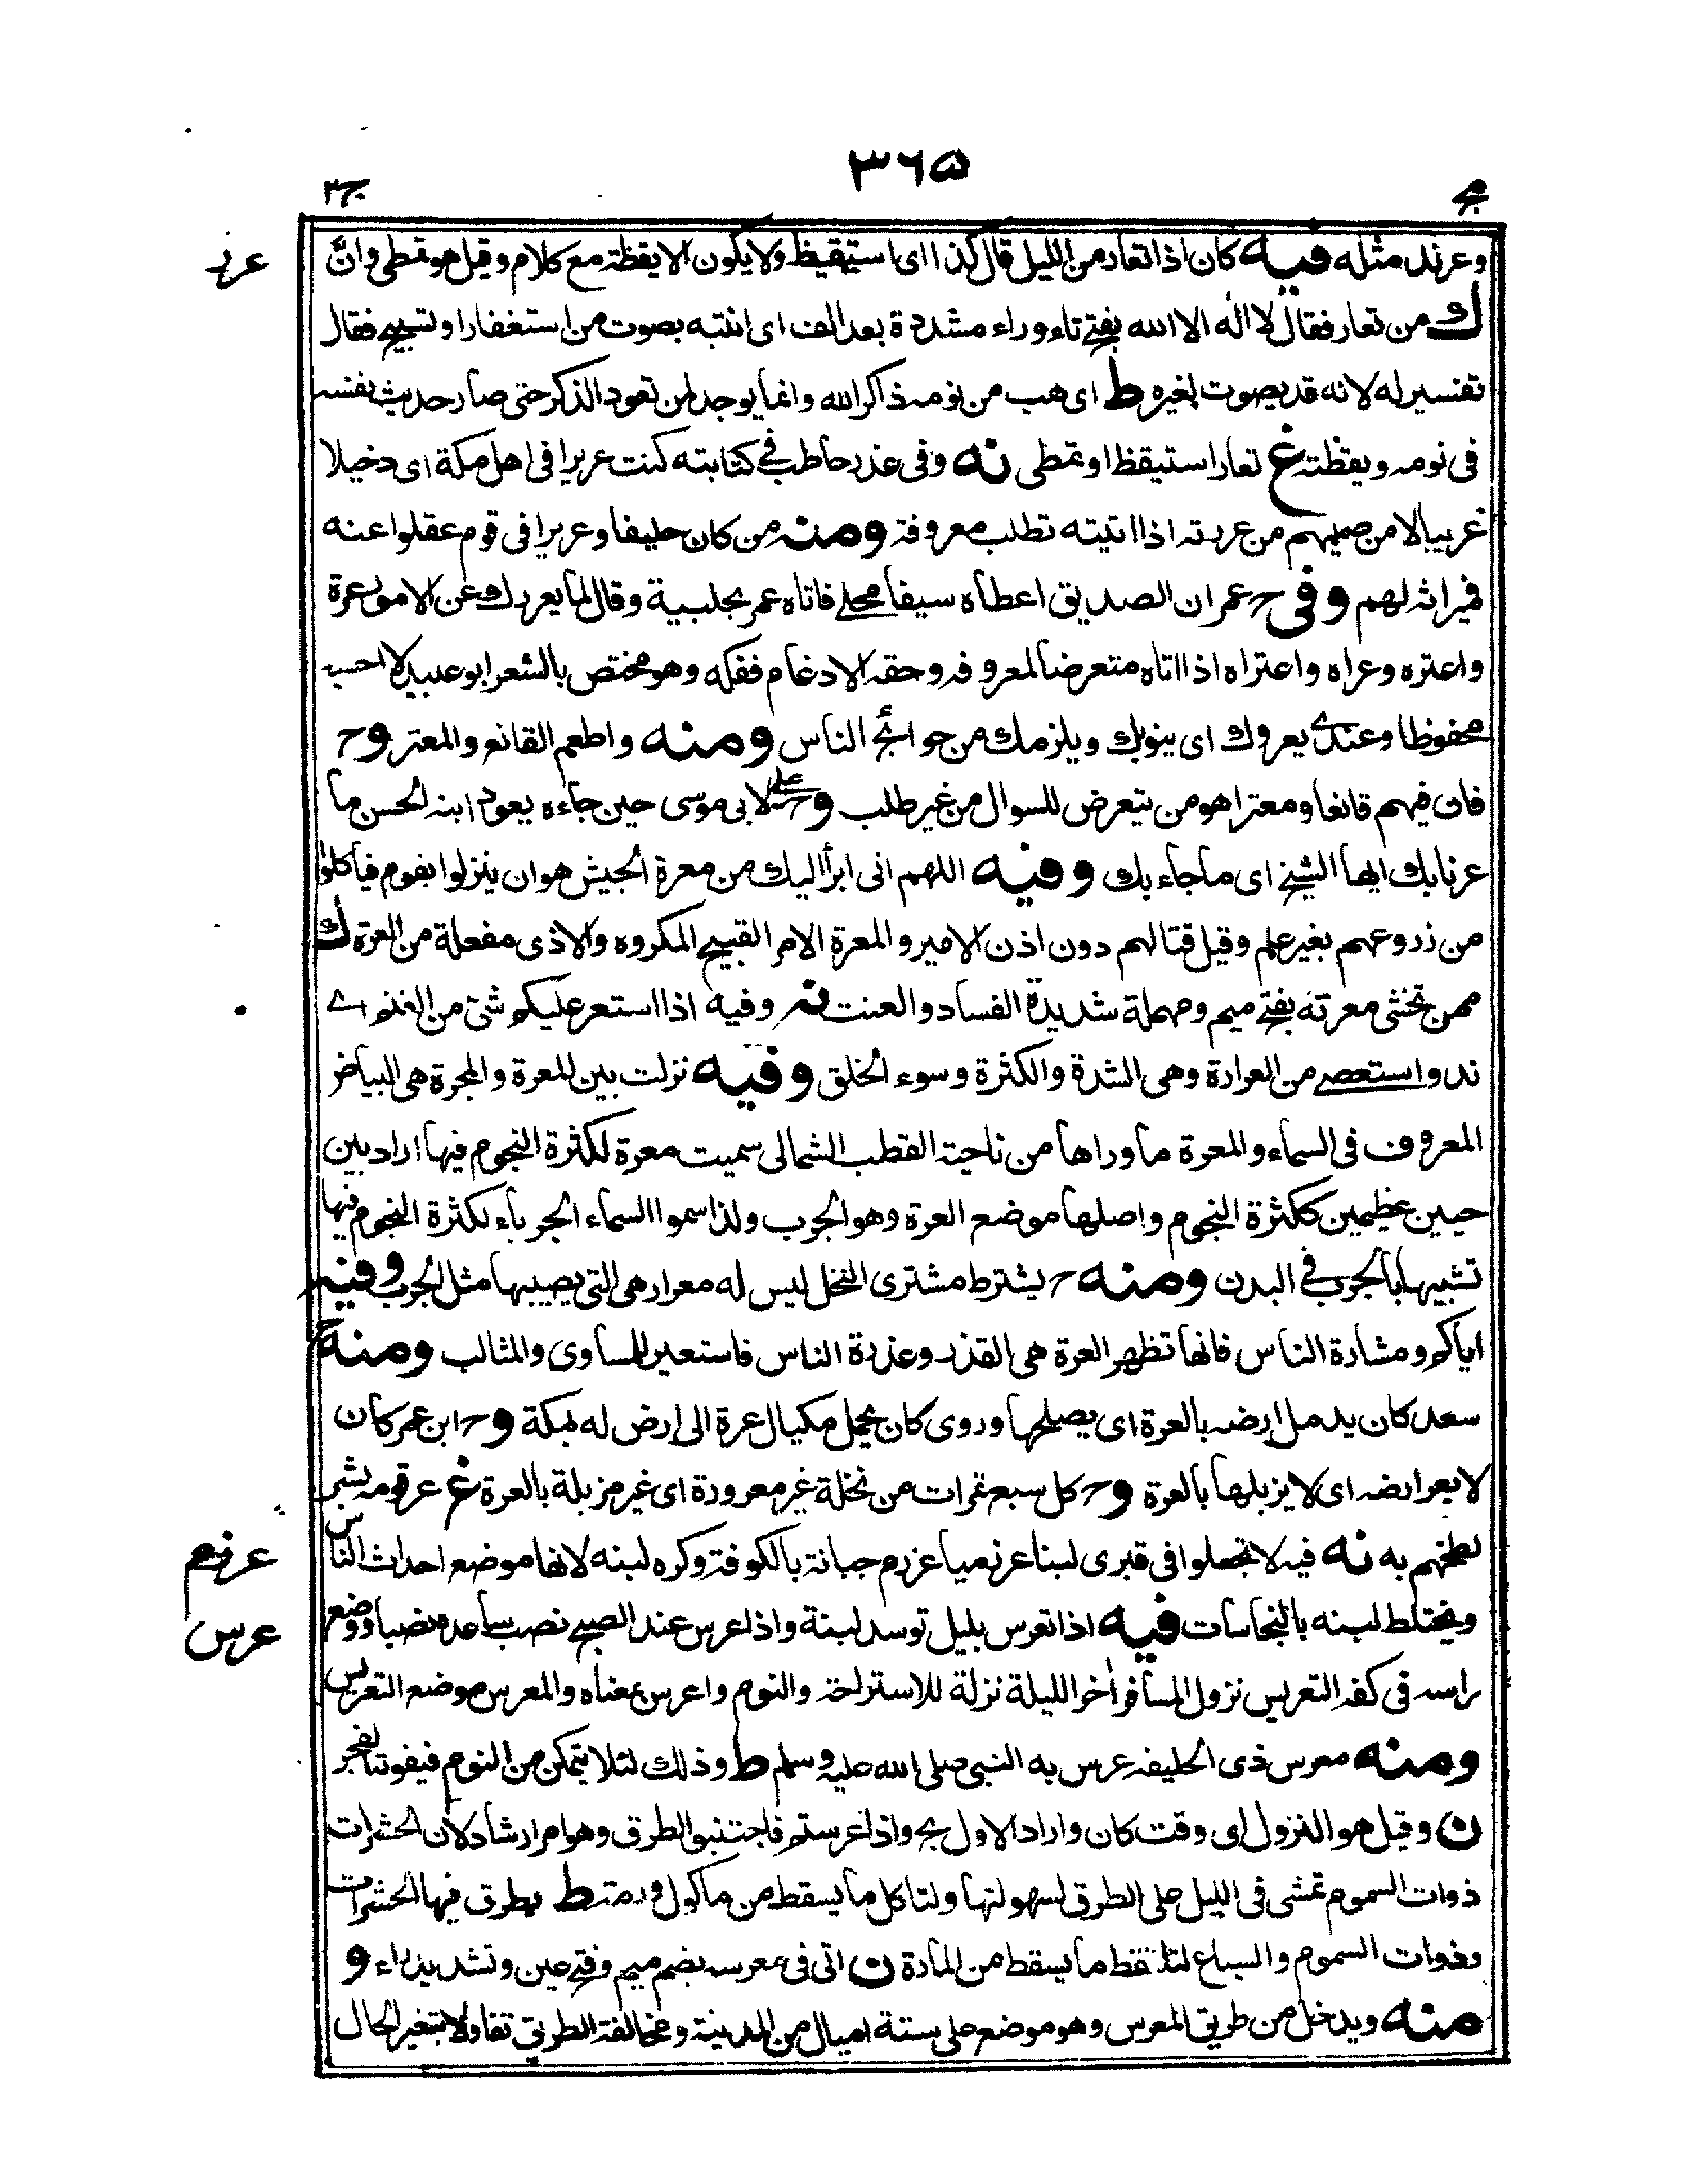 ۳۶۵
ج۳
وعرند مثله فيه كان اذا تعار من الليل قال كذا اى استيقظ ولا يكون الا يقظة مع كلام وقيل هو تمطى وانّ
عرر
ك من تعار فقال لا اله الا الله بفتح تاء وراء مشددة بعد الف اى انتبه بصوت من استغفار او تسبيح فقال
تفسير له لانه قد يصوت بغيره ط اى هب من نومه ذاكر الله وانما يوجد لمن تعود الذكر حتى صار حديث نفسه
فى نومه ويقظته غ تعار استيقظ او تمطى نه وفى عذر حاطب فى كتابته كنت عريرا فى اهل مكة اى دخيلا
غريبا لا من صميهم من عررته اذا اتيته تطلب معروفه ومنه من كان حليفا وعريرا فى قوم عقلوا عنه
فميراثه لهم وفى ح عمر ان الصديق اعطاه سيفا محلى فاتاه عمر بحلية وقال لما يعررك من الامور عرة
واعتره وعراه واعتراه اذا اتاه متعرضا لمعروفه وحقه الادغام ففكه وهو مختص بالشعر ابو عبيد لا احسبه
محفوظا وعندى يعروك اى ينوبك ويلزمك من حوائج الناس ومنه واطعم القانع والمعتر وح
فان فيهم قانعا ومعترا هو من يتعرض للسوال من غير طلب وح على لابى موسى حين جاءه يعود ابنه الحسن ما
عرنا بك ايها الشيخ اى ما جاء بك وفيه اللهم انى ابرأ اليك من معرة الجيش هو ان ينزلوا بقوم فيأكلوا
من زروعهم بغير علم وقيل قتالهم دون اذن الامير والمعرة الامر القبيح المكروه والاذى مفعلة من العرة ك
ممن تخشى معرته بفتح ميم ومهملة شديدة الفساد والعنت نه وفيه اذا استعر عليكم شئ من الغنم اے
ند واستعصى من العرارة وهى الشدة والكثرة وسوء الخلق وفيه نزلت بين المعرة والمجرة هى البياض
المعروف فى السماء والمعرة ما وراها من ناحية القطب الشمالى سميت معرة لكثرة النجوم فيها اراد بين
حيين عظيمين ككثرة النجوم واصلها موضع العرة وهو الجرب ولذا سموا السماء الجرباء لكثرة النجوم فيها
تشبيها بالجرب فى البدن ومنه ح يشترط مشترى النخل ليس له معرار هى التى يصيبها مثل الجرب وفيه
اياكم ومشارة الناس فانها تظهر العرة هى القذر وعذرة الناس فاستعير للمساوى والمثالب ومنه ح
سعد كان يدمل ارضه بالعرة اى يصلحها وروى كان يحمل مكيال عرة الى ارض له بمكة وح ابن عمر كان
لا يعر ارضه اى لا يزبلها بالعرة وح كل سبع تمرات من نخلة غير معرورة اى غير مزبلة بالعرة غ عر قومه بشر
لطخهم به نه فيه لا تجعلوا فى قبرى لبنا عرزميا عرزم جبانة بالكوفة وكره لبنه لانها موضع احداث الناس
عرزم
ويختلط لبنه بالنجاسات فيه اذا تعرس بليل توسد لبنة واذا عرس عند الصبح نصب ساعده نصبا ووضع
عرس
راسه فى كفه التعريس نزول المسافر اخر الليلة نزلة للاستراحة والنوم واعرس بمعناه والمعرس موضع التعريس
ومنه معرس ذى الحليفة عرس به النبى صلى الله عليه وسلم ط وذلك لئلا يتمكن من النوم فيفوته الفجر
ن وقيل هو النزول اى وقت كان واراد الاول بح واذا عرستم فاجتنبوا الطرق وهو امر ارشاد لان الحشرات
ذوات السموم تمشى فى الليل على الطرق لسهولتها ولتاكل ما يسقط من ماكول ورمة ط يطرق فيها الحشرات
وذوات السموم والسباع لتلتقط ما يسقط من المارة ن اتى فى معرسه بضم ميم وفتح عين وتشديد راء و
منه ويدخل من طريق المعرس وهو موضع على ستة اميال من المدينة ومخالفة الطريق تفاولا بتغير الحال